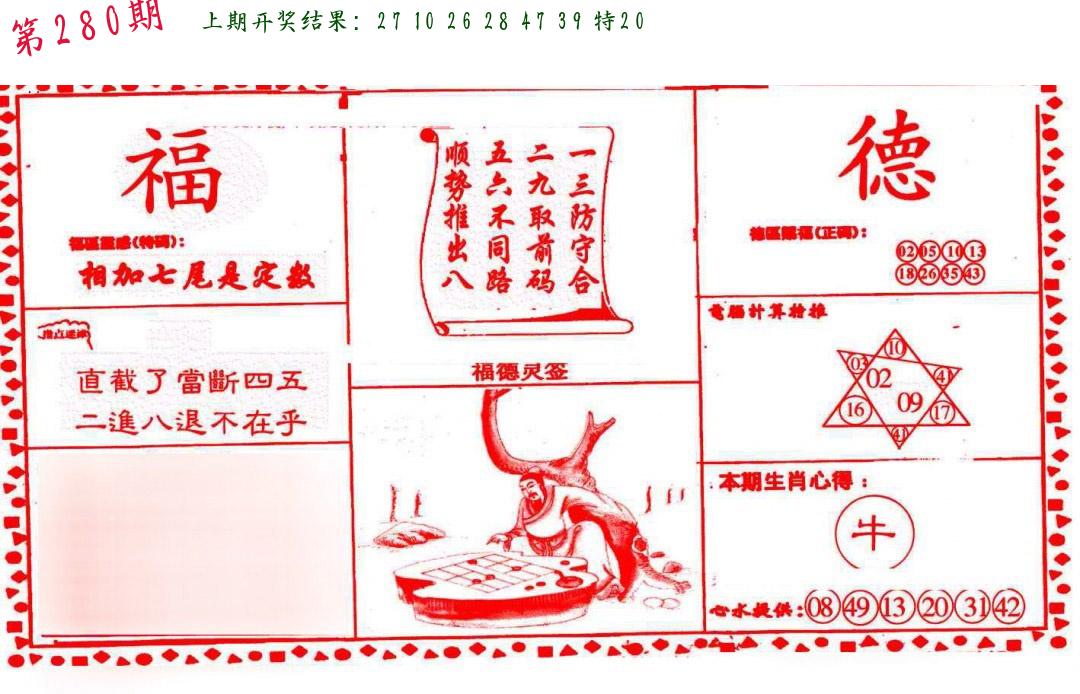 第280期
上期开奖结果: 27 10 26 28 47 39 特20
福
福區靈感(特碼):
相加七尾是定数
指点迷津
直截了當斷四五
二進八退不在乎
一三防守合
二九取前码
五六不同路
顺势推出八
福德灵签
德
德區賜福(正碼):
02 05 10 13
18 26 35 43
電腦計算給推
10
03 41
02
09
16 17
41
本期生肖心得:
牛
心水提供: 08 49 13 20 31 42